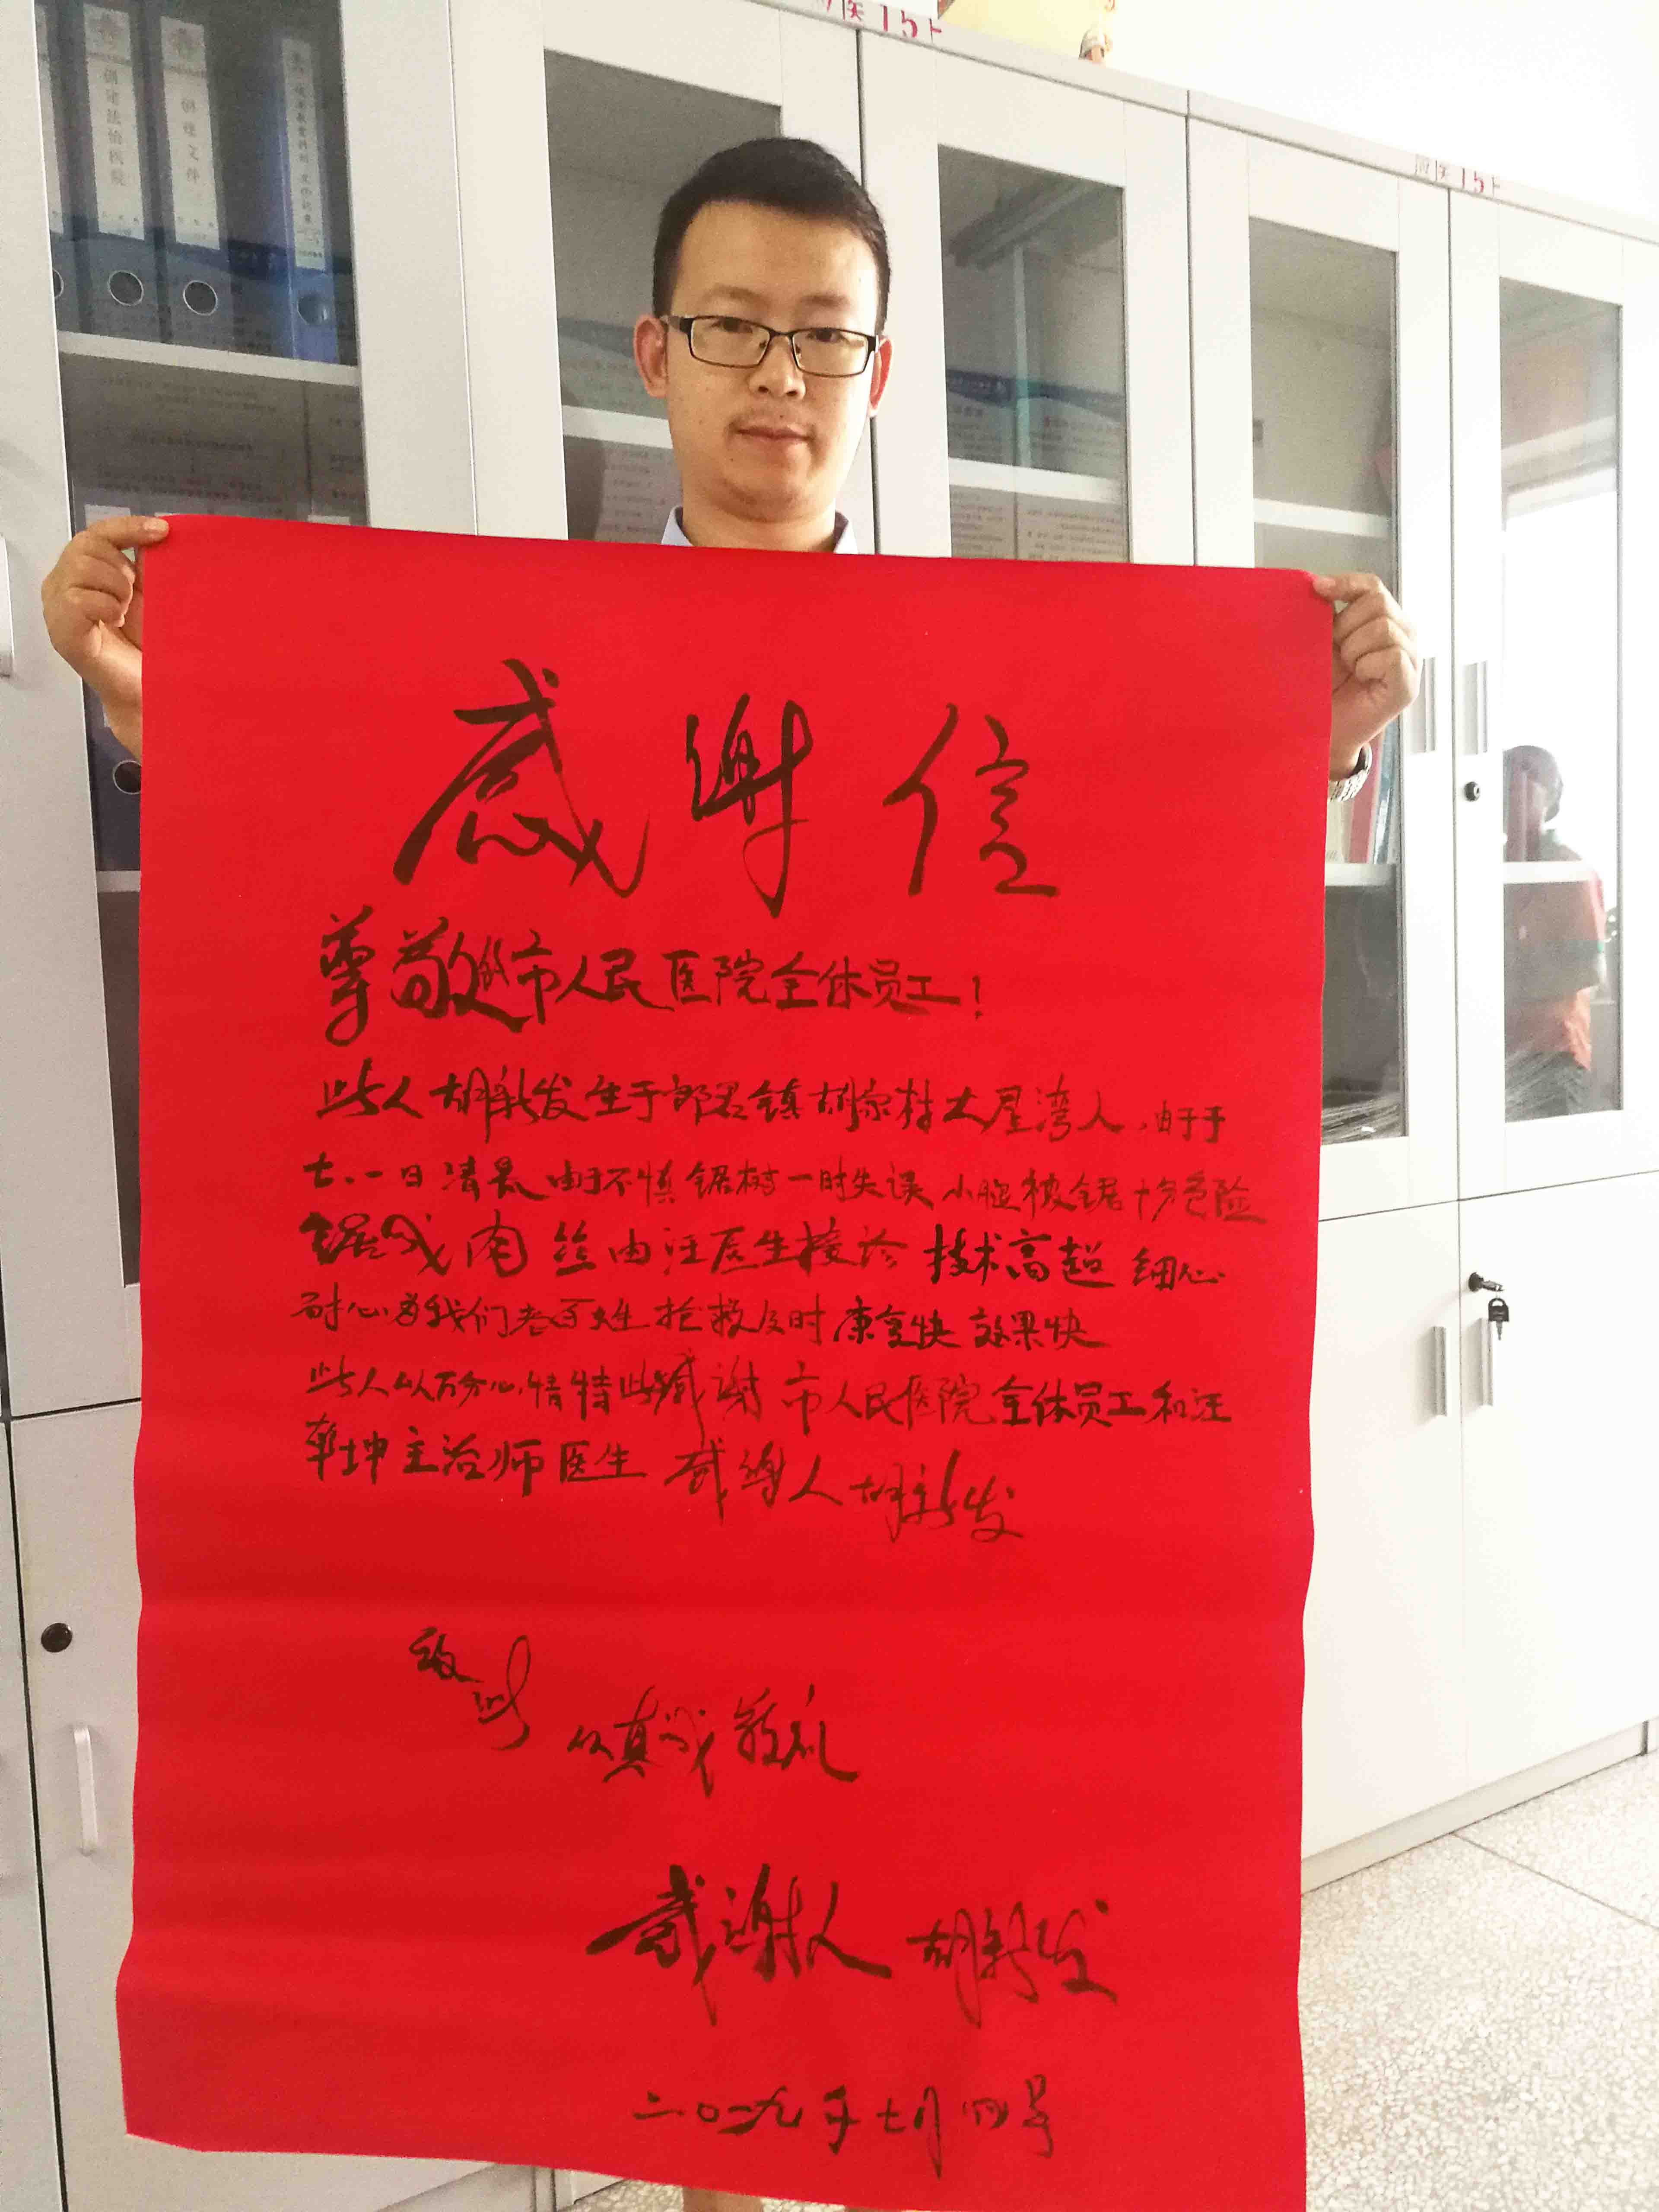 医15上
医15上
创建法治医院
创建文件
感谢信
尊敬的市人民医院全体员工!
此人胡新发生于郎君镇胡家村大星湾人,由于于
七.一日清晨由于不慎锯树一时失误小腿被锯十分危险
锯成肉丝由汪医生接诊技术高超细心
耐心为我们老百姓抢救及时康复快效果快
此人以万分心情特此感谢市人民医院全体员工和汪
乾坤主治师医生感谢人胡新发
致此
以真诚敬礼
感谢人胡新发
二〇一九年七月四号